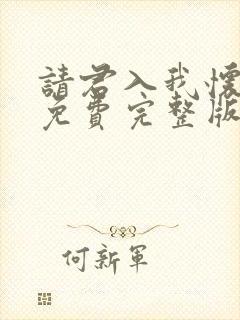 請君入我懷
免費完整版
何新軍